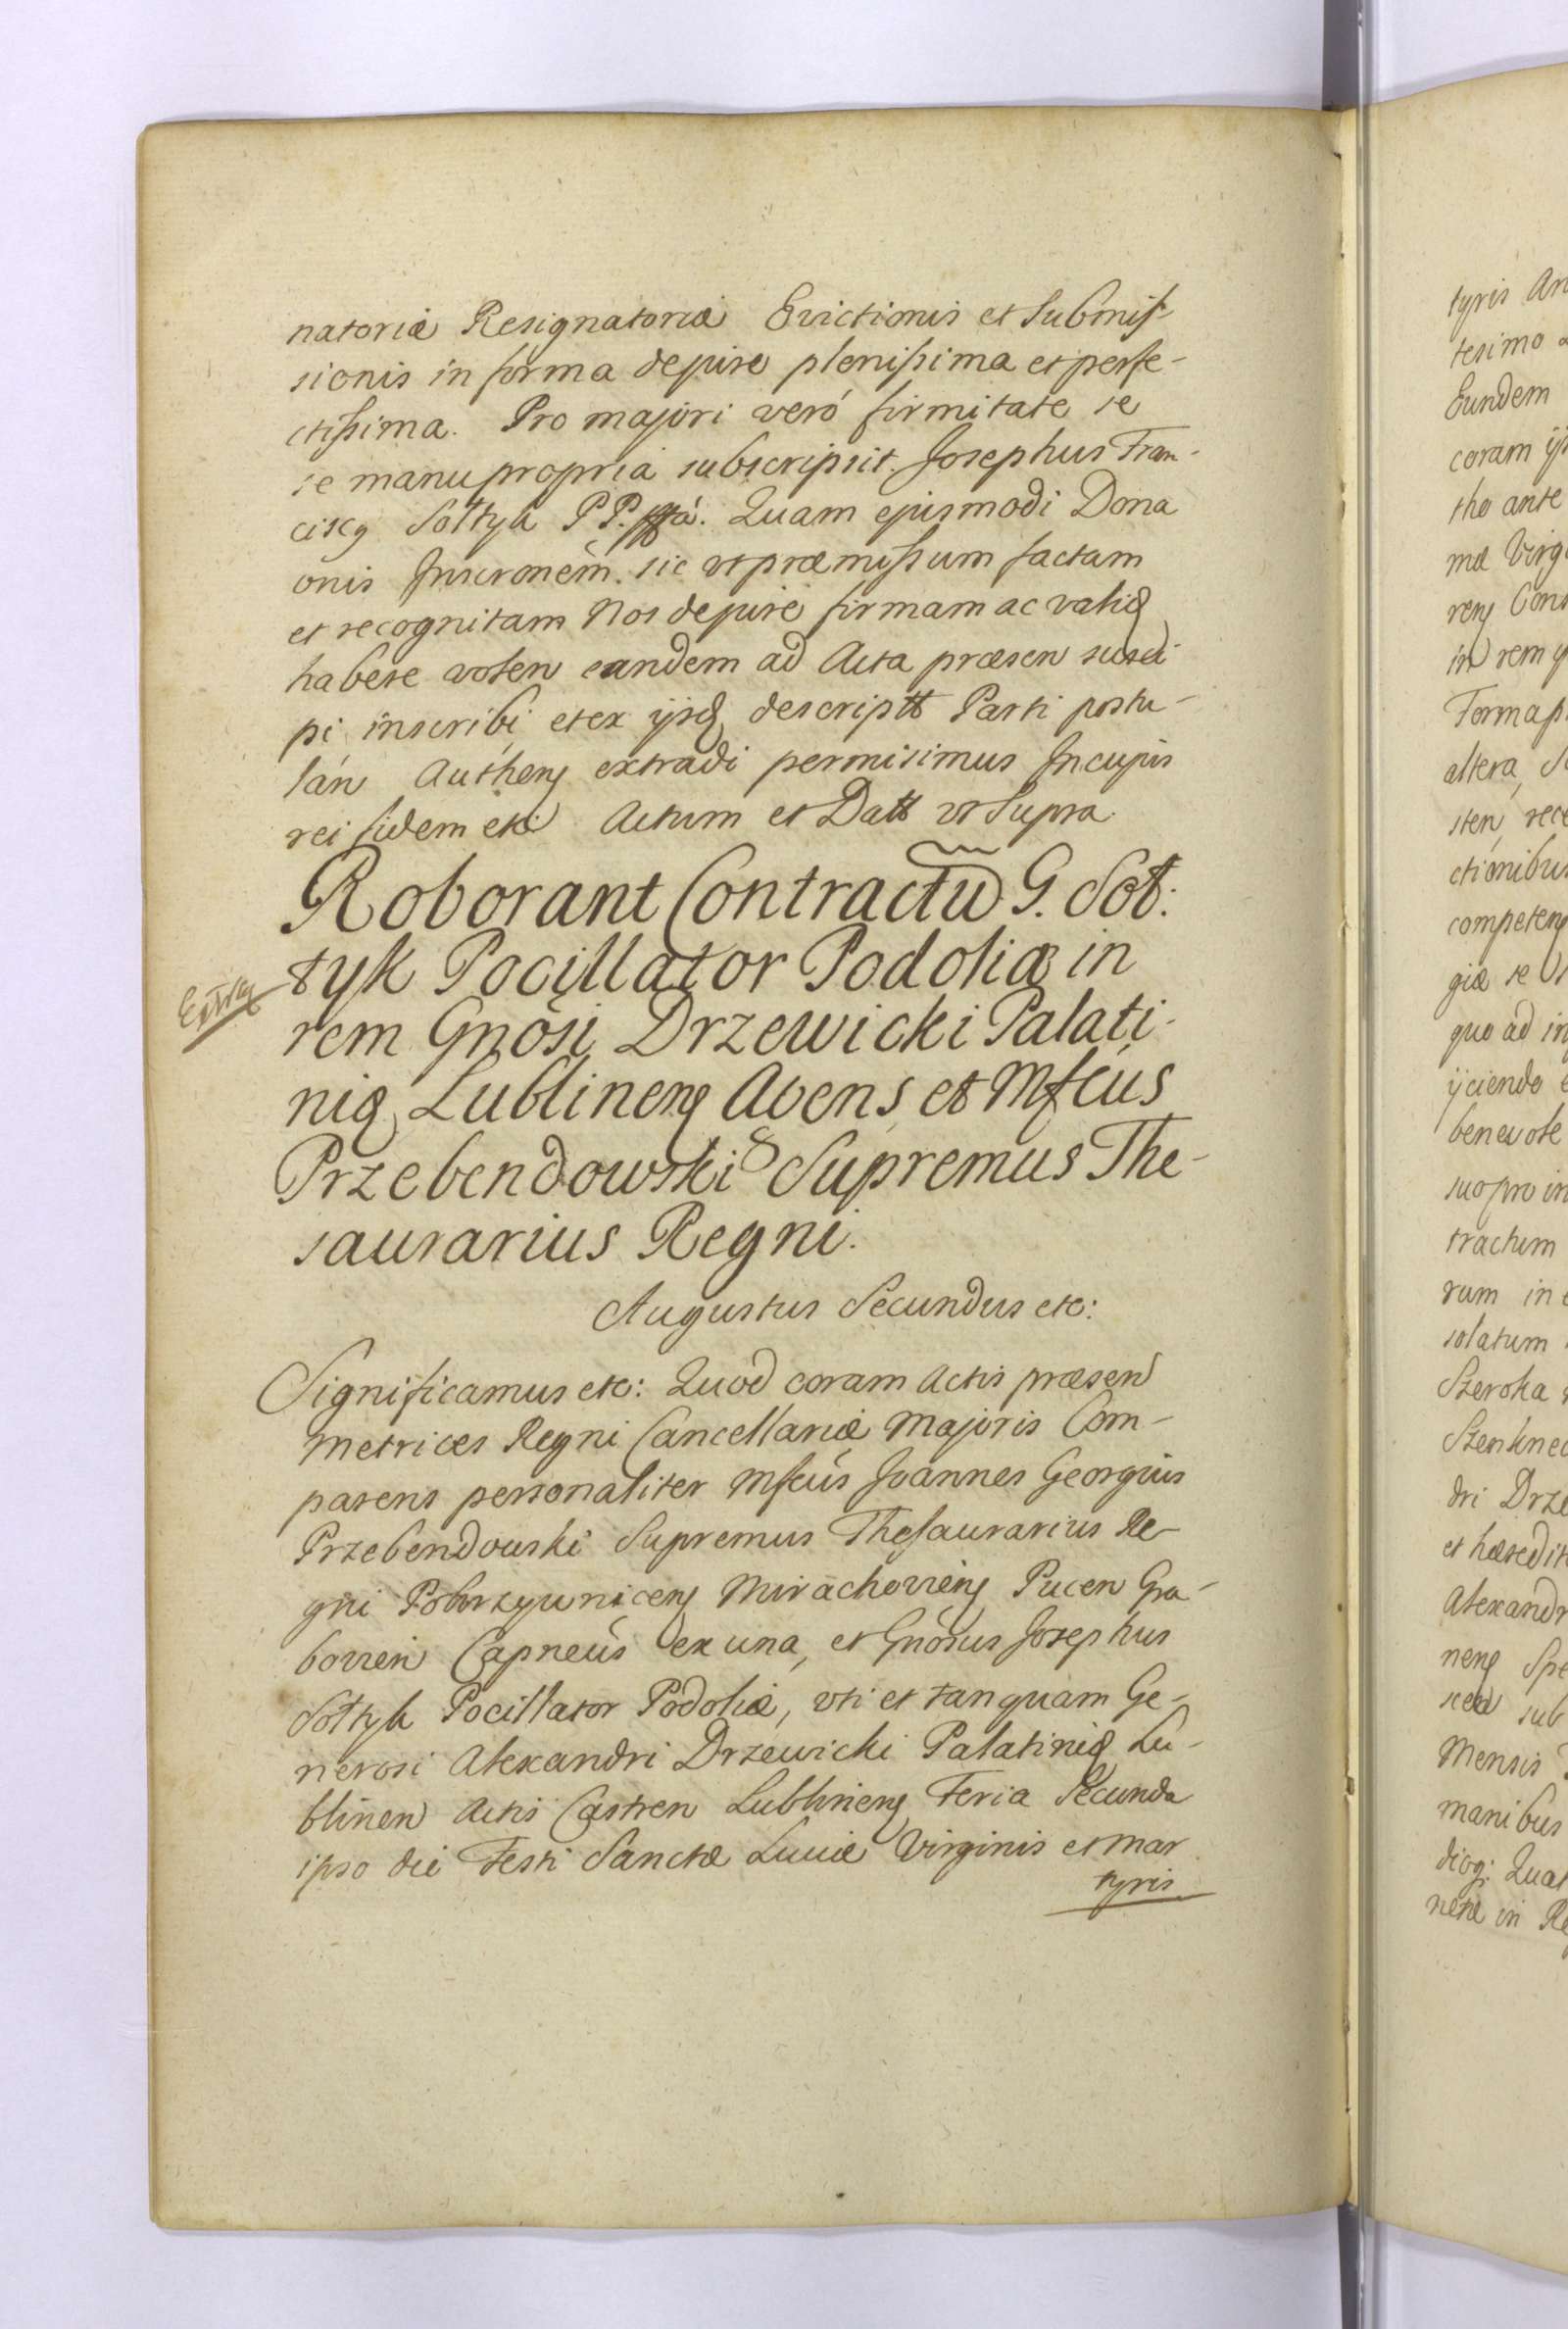 natoriæ Resignatoriæ Evictionis et Submis-
sionis in forma dejure plenissima et perfe-
ctissima. Pro majori veró firmitate se
se manu propria subscripsit. Josephus Fran-
cisc9 Sołtyk P P. Quam ejusmodi Dona
onis Inscronem. sic vt præmissum factam
et recognitam Nos dejure firmam ac valid
habere volen eandem ad Acta præsen suscī
pi inscribi et ex ijsd descriptt Parti postu-
lán Autheng extradi permisimus In cujus
rei fidem etc Actum et Datt vt Supra
Roborant Contractū G. Soł:
tyk Pocillator Podoliæ in
rem Gnósi Drzewicki Palati-
nid Lublineng Avens et Mfcús
Przebendowski Supremus The-
saurarius Regni.
Extra
Augustus Secundus etc:
Significamus etc: Quod coram Actis præsen
Metrices Regni Cancellariæ Majoris Com-
parens personaliter Mfcús Joannes Georgius
Przebendowski Supremus Thesaurarius Re-
gni Mirachovieng Pucen Gra-
bovien Capneús ex una, et Gnósus Josephus
Sołtyk Pocillator Podoliæ, vti et tanquam Ge-
nerosi Alexandri Drzewicki Palatinid Lu-
blinen Actis Castren Lublineng Feria Secunda
ipso die Festi Sanctæ Luciæ Virginis et Mar
tyris
tyris An
tesimo
Eundem
coram ijs
tho ante
mæ Virg
reng Cons
in rem
Forma p
altera,
sten, rece
ctionibus
competeng
giæ se
quo ad in
ijciendo
benevole
suo pro in
tractum
rum in
solatum
Szeroka
dri Drze
et hæredit
Alexandr
neng Spe
sub
Mensis
manibus
Quat
in Re